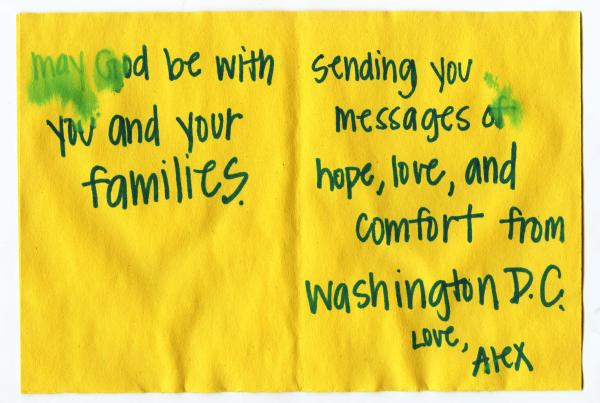 may God be with
you and your
families.
sending you
messages of
hope, love, and
comfort from
washington D.C.
Love,
Alex